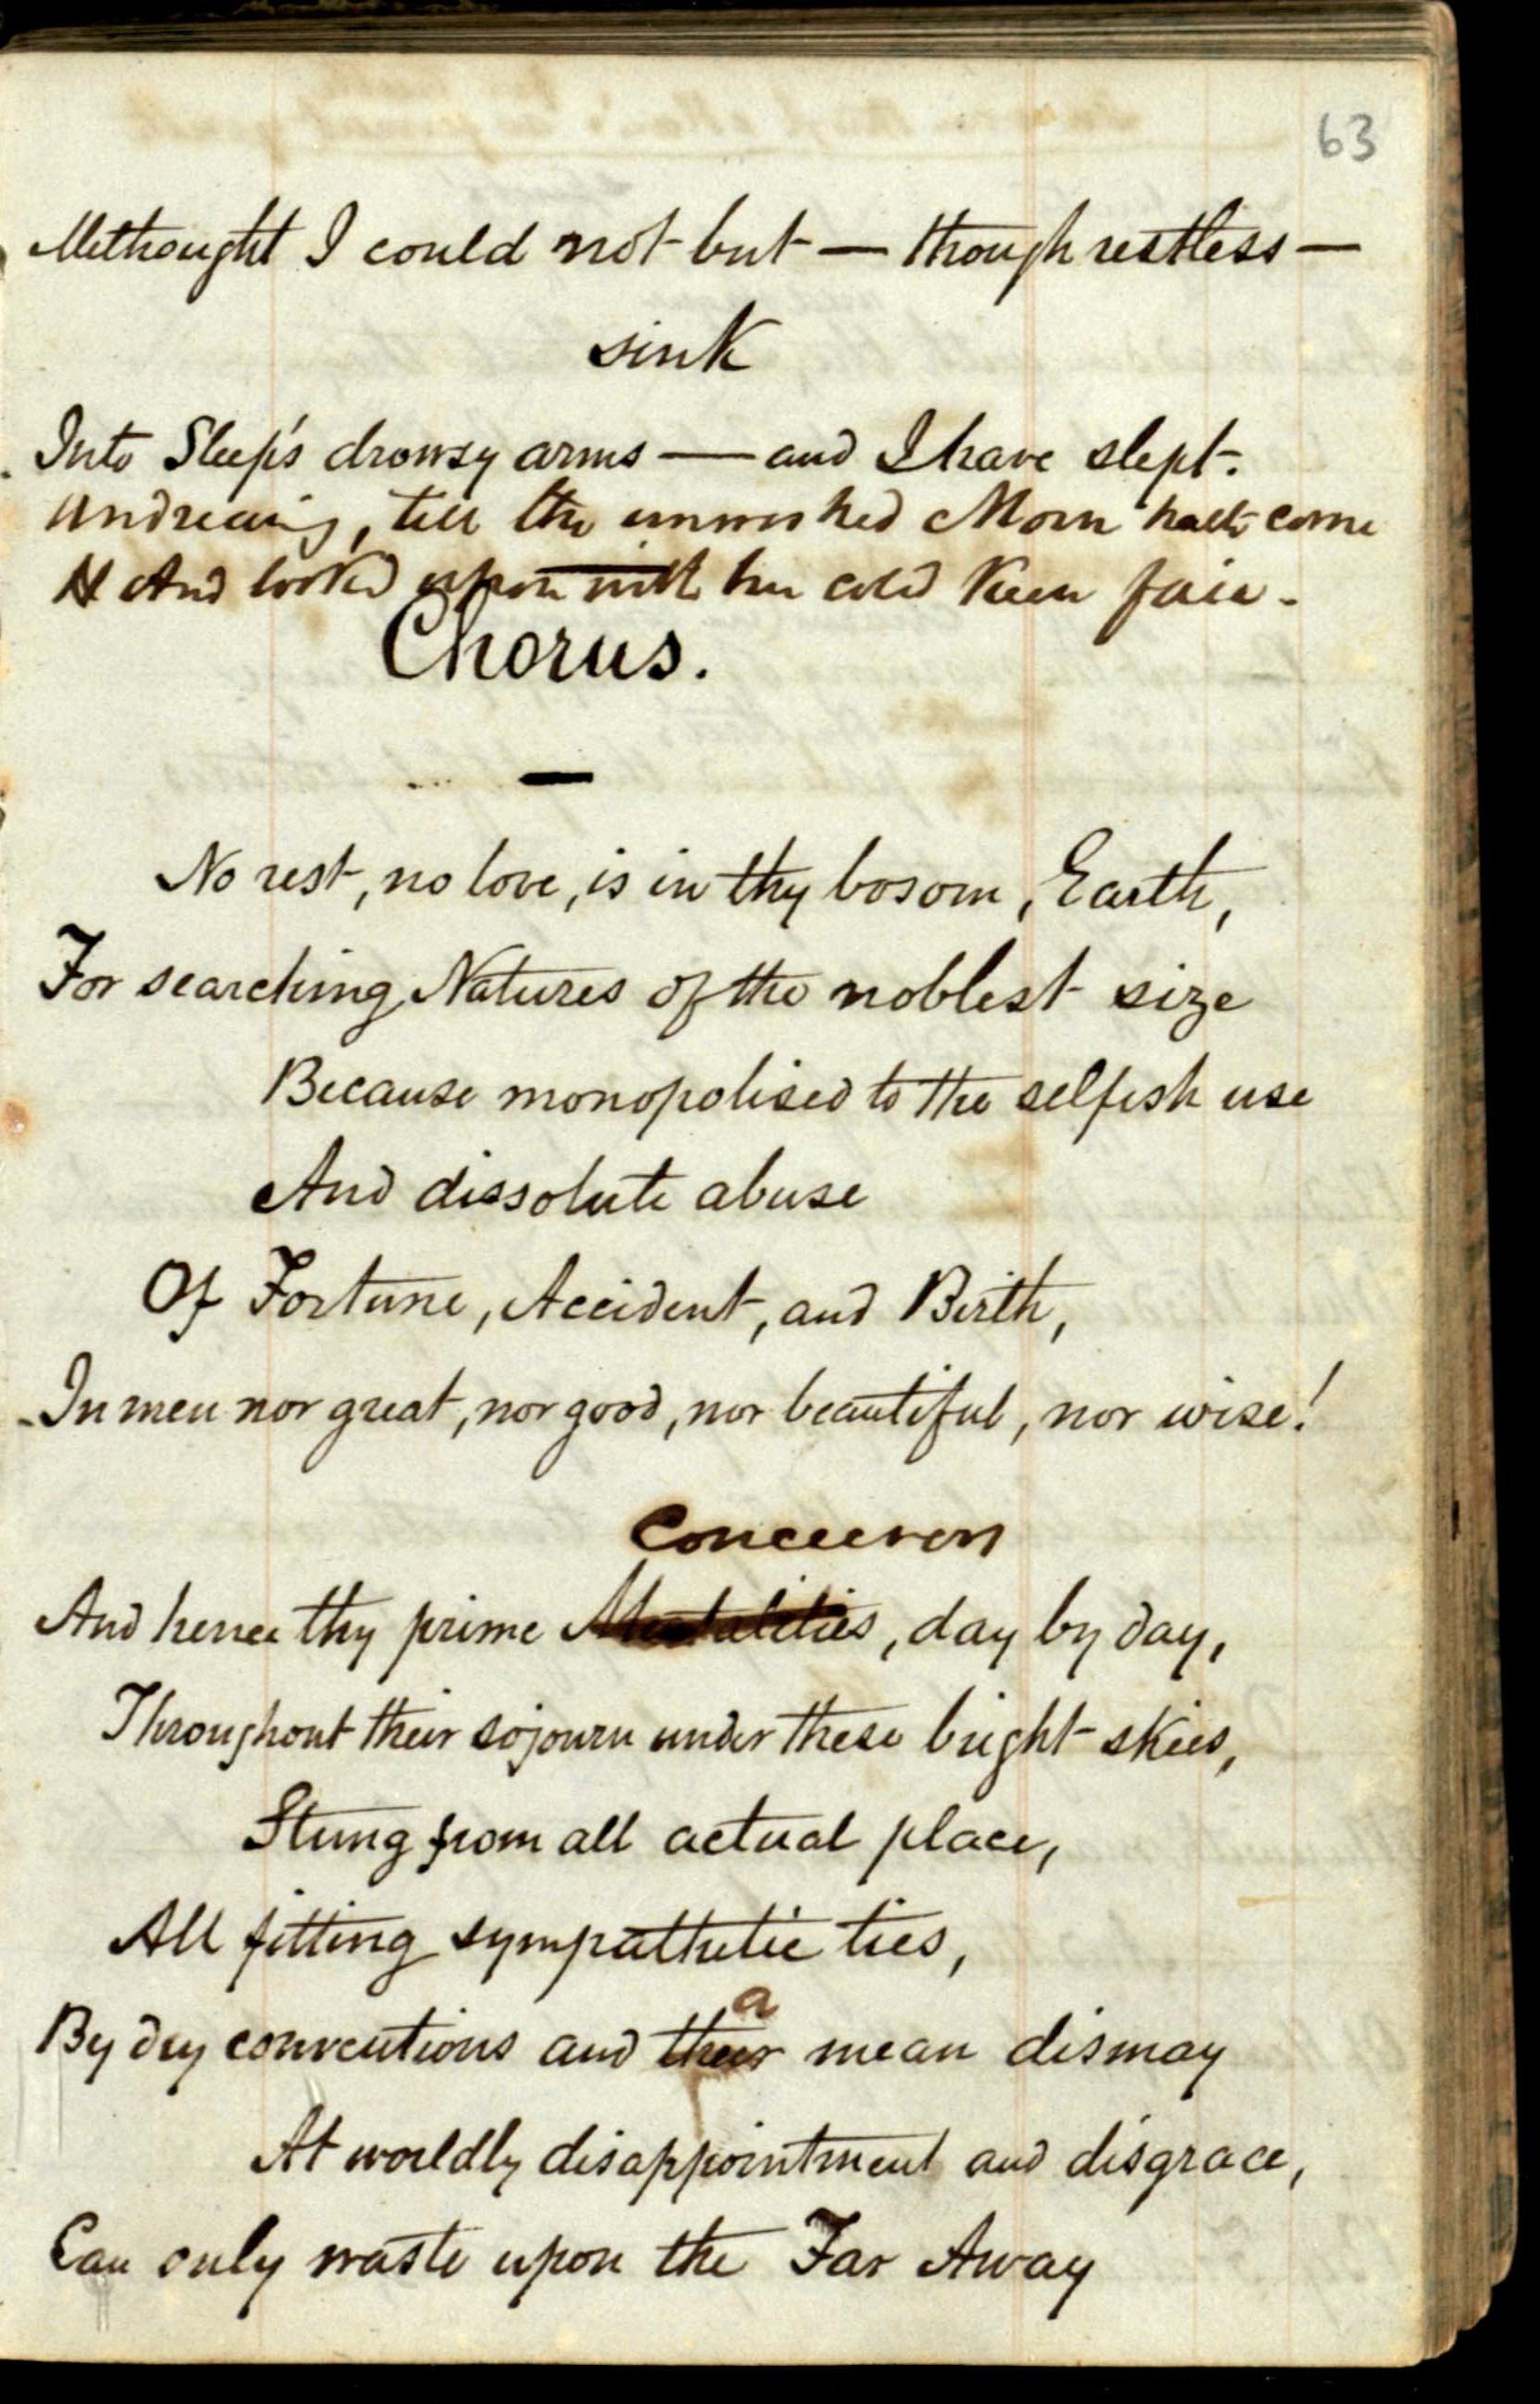 63
Methought I could not but — though restless —
sink
Into Sleep's drowsy arms — and I have slept.
till the Morn hath come
And look'd upon with her cold keen face.
Chorus.
No rest, no love, is in thy bosom, Earth,
For searching Natures of the noblest size
Because monopolised to the selfish use
And dissolute abuse
Of Fortune, Accident, and Birth,
In men nor great, nor good, nor beautiful, nor wise!
And hence thy prime Mentalities, day by day,
Throughout their sojourn under these bright skies,
Stung from all actual place,
All fitting sympathetic ties,
a
By dry conventions and their mean dismay
At worldly disappointment and disgrace,
Can only waste upon the Far Away